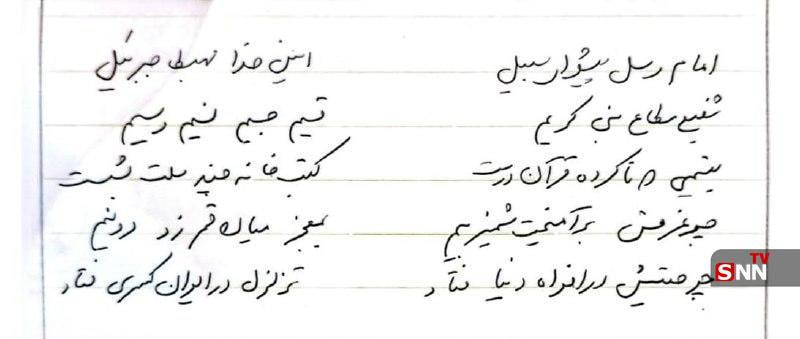 امام رسل پیشوای سبیل امین خدا مهبط جبرئیل
شفیع مطاع نبی کریم قسیم جسیم نسیم وسیم
یتیمی که ناکرده قرآن درست کتب خانه چند ملت بشست
چو عزمش برآهیخت شمشیر بیم بمعجز میان قمر زد دونیم
چو صیتش در افواه دنیا فتاد تزلزل در ایوان کسری فتاد
SNN TV